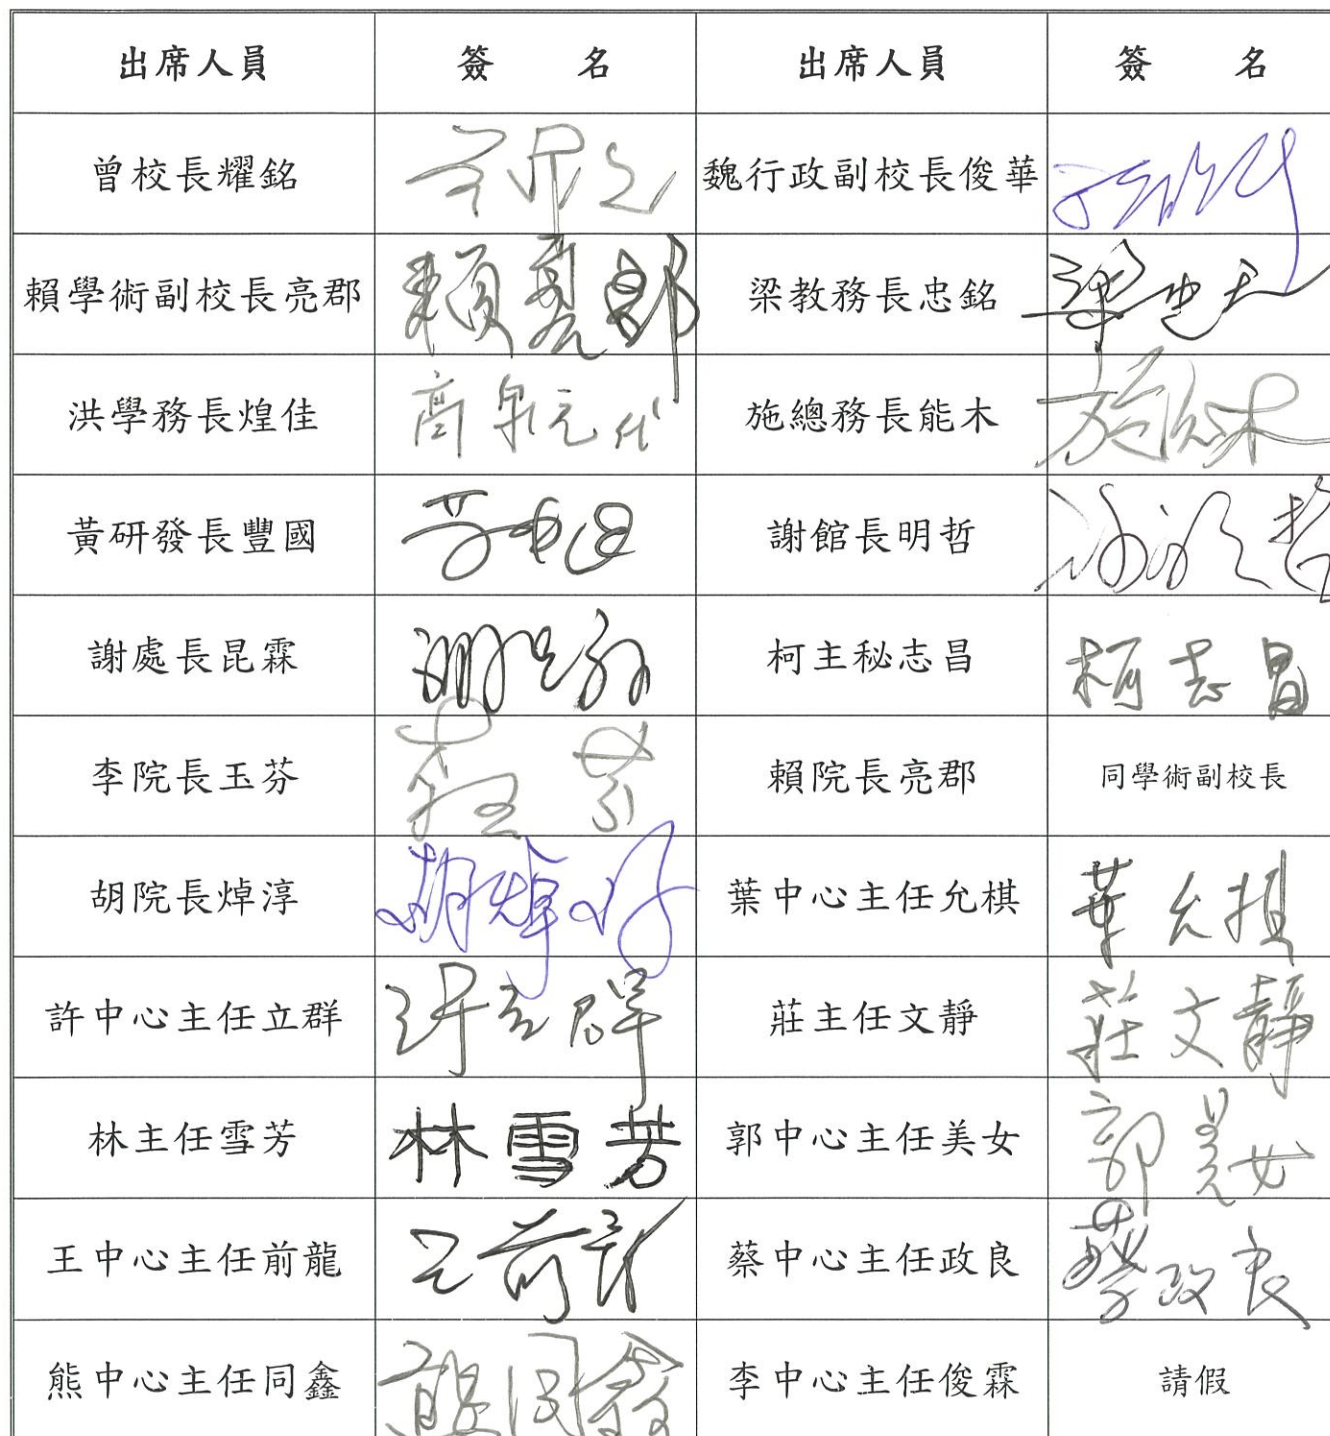 出席人員 簽 名 出席人員 簽 名
曾校長耀銘 魏行政副校長俊華
賴學術副校長亮郡 賴亮郡 梁教務長忠銘 梁忠銘
洪學務長煌佳 高泉元代 施總務長能木 施能木
黃研發長豐國 謝館長明哲
謝處長昆霖 謝昆霖 柯主秘志昌 柯志昌
李院長玉芬 李玉芬 賴院長亮郡 同學術副校長
胡院長焯淳 胡焯淳 葉中心主任允棋 葉允棋
許中心主任立群 許立群 莊主任文靜 莊文靜
林主任雪芳 林雪芳 郭中心主任美女 郭美女
王中心主任前龍 王前龍 蔡中心主任政良 蔡政良
熊中心主任同鑫 熊同鑫 李中心主任俊霖 請假